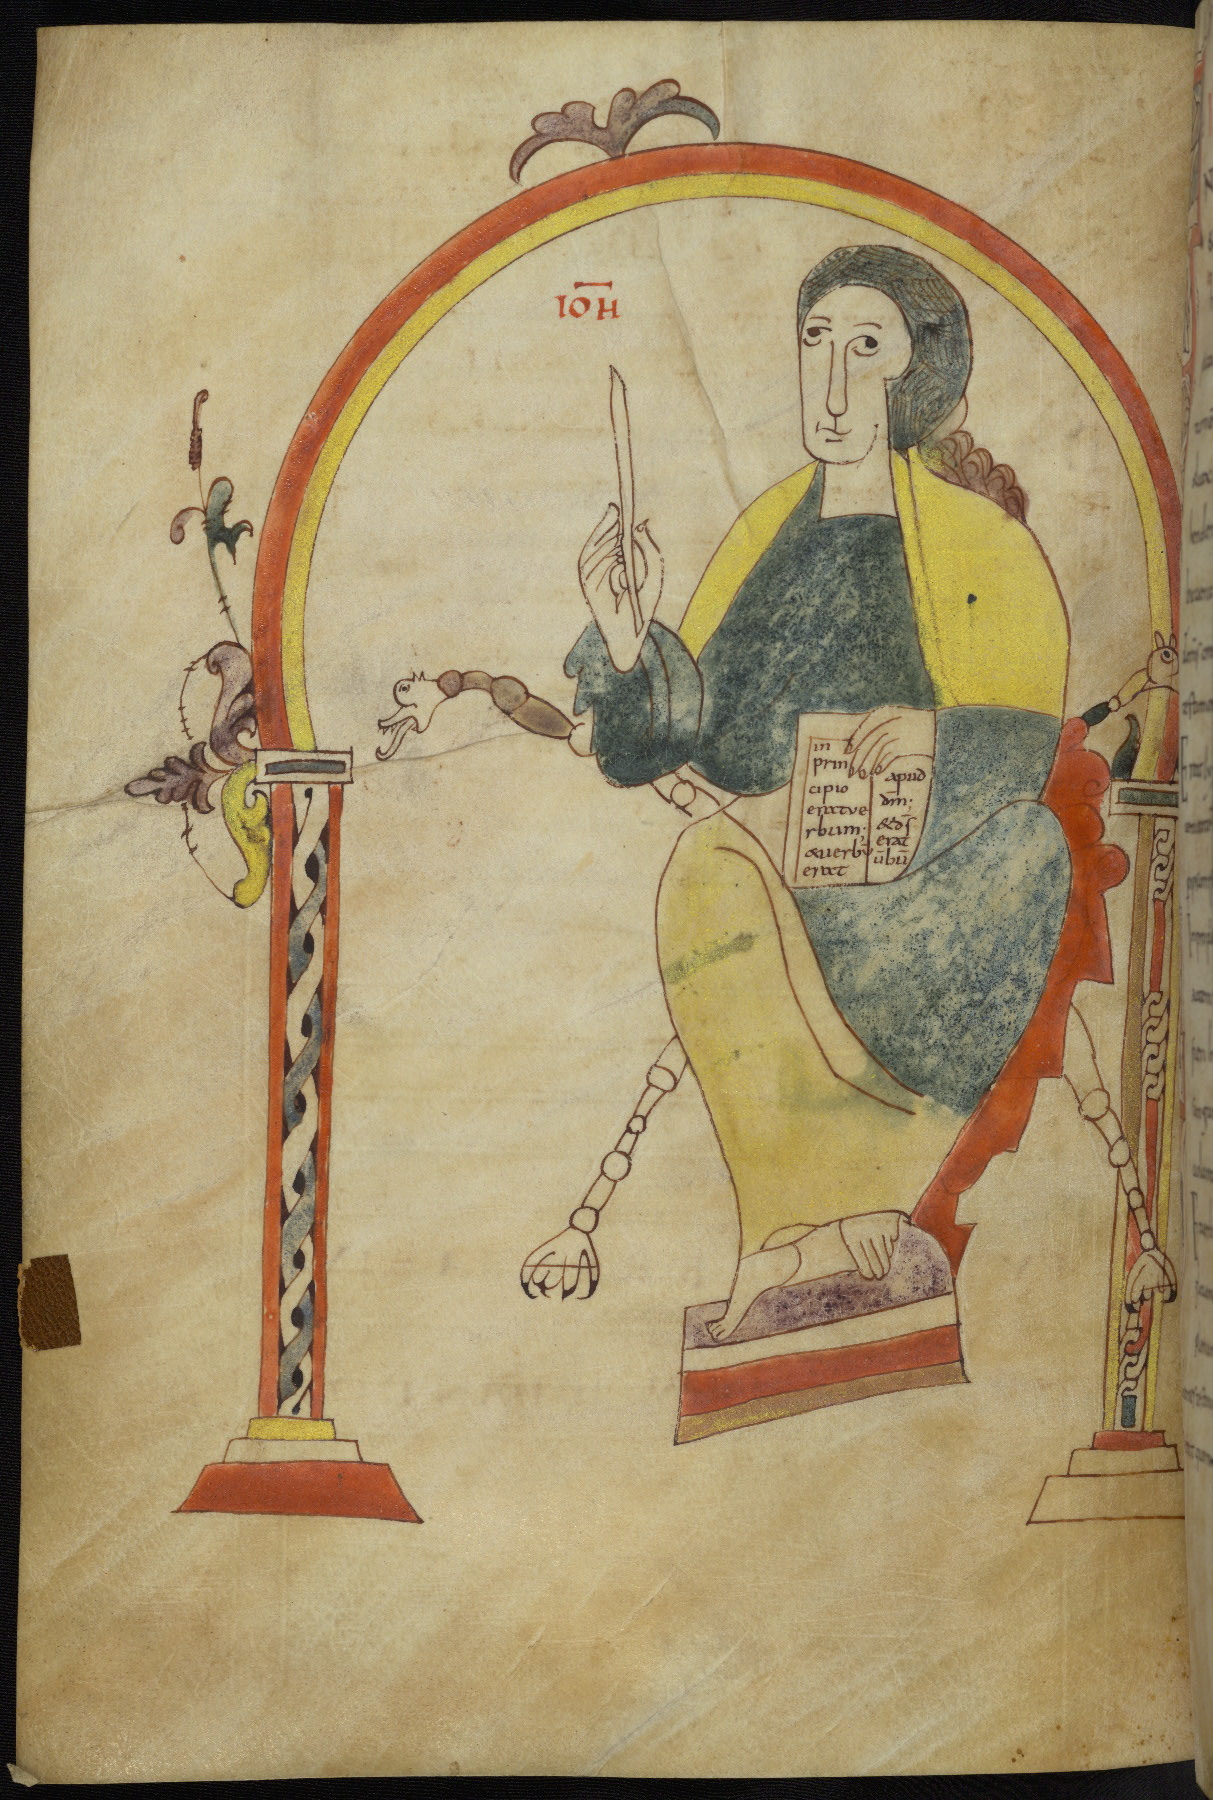 IOH
in
prin
cipio
eratve
rbum:
&verbū
erat
apud
dm̄:
&ds̄
erat
ūbū